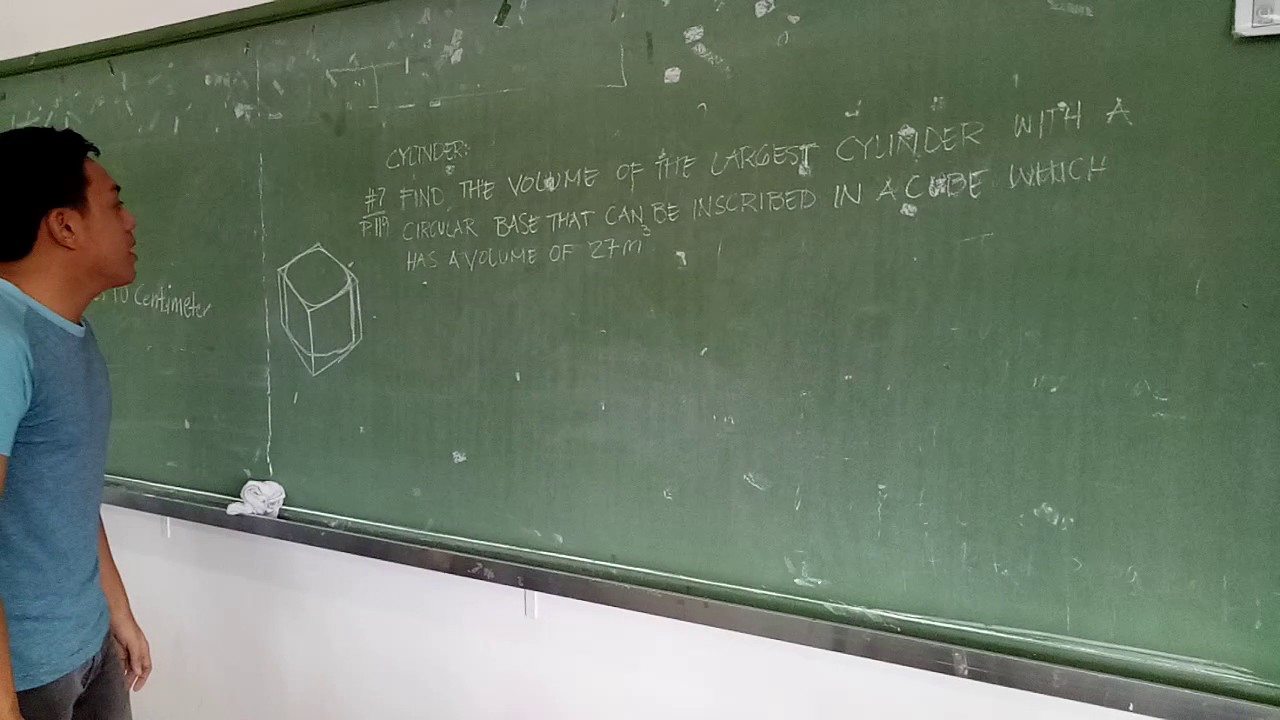 to Centimeter
CYLINDER:
#7 FIND THE VOLUME OF THE LARGEST CYLINDER WITH A
P.119 CIRCULAR BASE THAT CAN BE INSCRIBED IN A CUBE WHICH
HAS A VOLUME OF 27m³